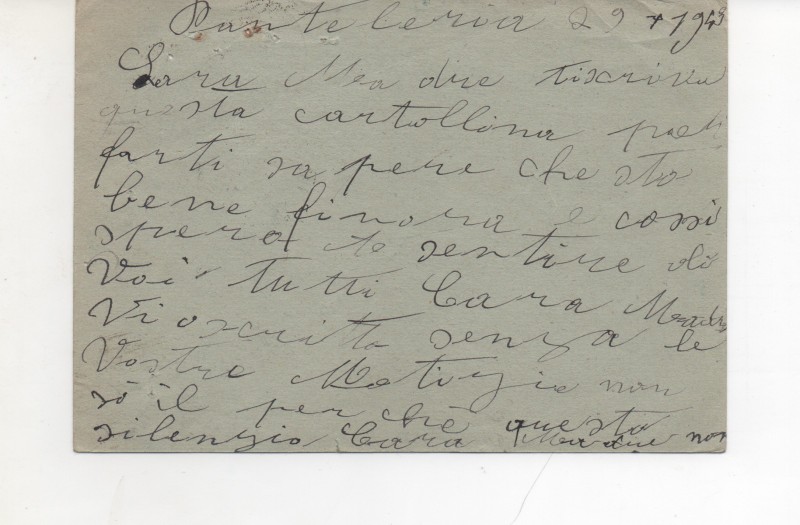 Pantelleria 29 + 1943
Cara Mea dre ti scrivo
questa cartollina per
farti sa pere che sto
bene finora e cossi
spero te sentire di
Voi tutti Cara Meadre
Vi o scritto senza le
Vostre Notizie non
sò il per chè questo
silenzio Cara Meadre non